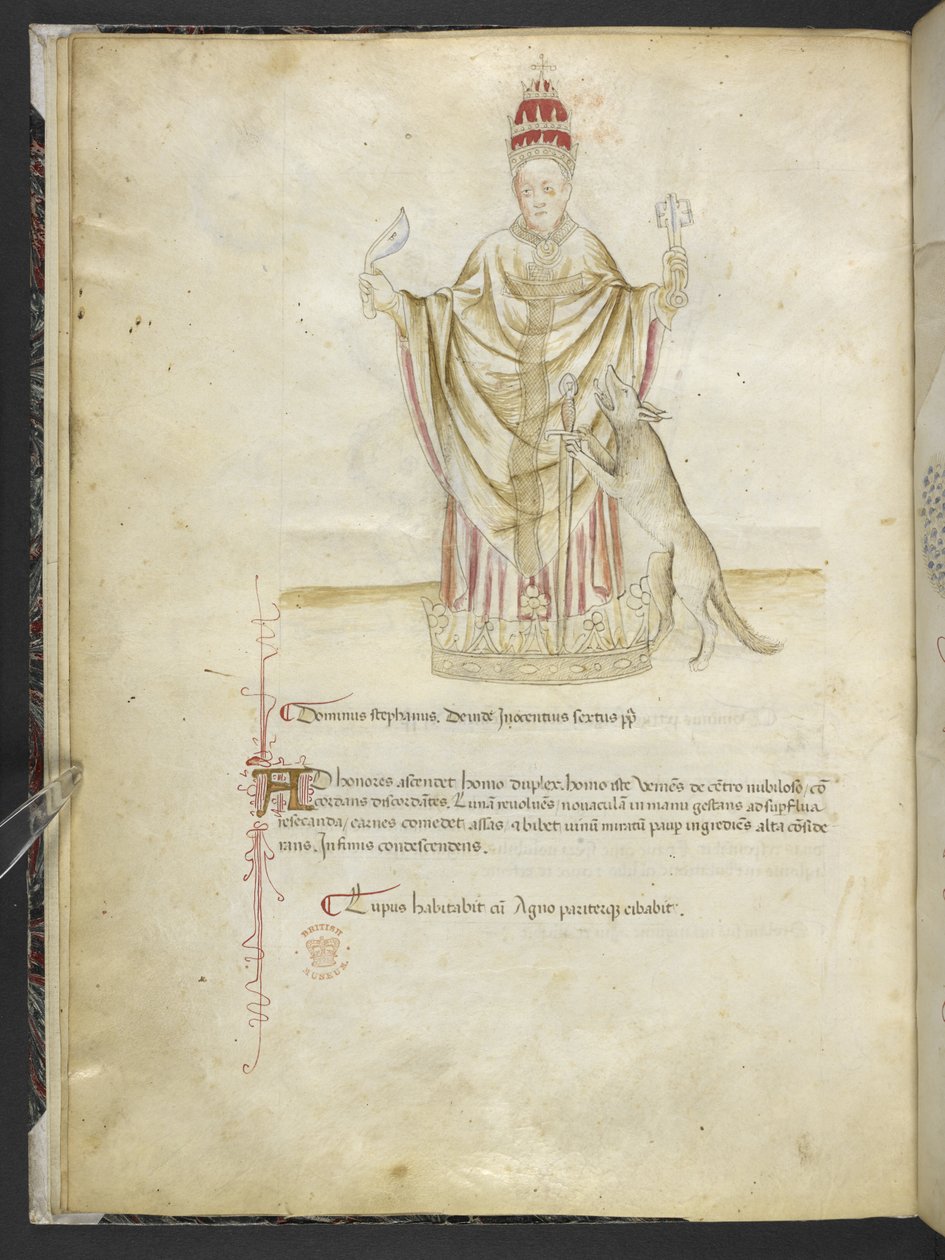 Dominus stephanus. Deinde Inocentius sextus pp̄
AD honores ascendet homo duplex. homo iste veniēs de cētro nubiloso / cō
cordans discordātes. Lunā revoluēs / novaculā in manu gestans ad supflua
resecanda / carnes comedet assas / & bibet vinū miratū paup ingrediēs alta cōside
rans. In finnis condescendens.
Lupus habitabit cū Agno pariterq; cibabit.
BRITISH
MUSEUM